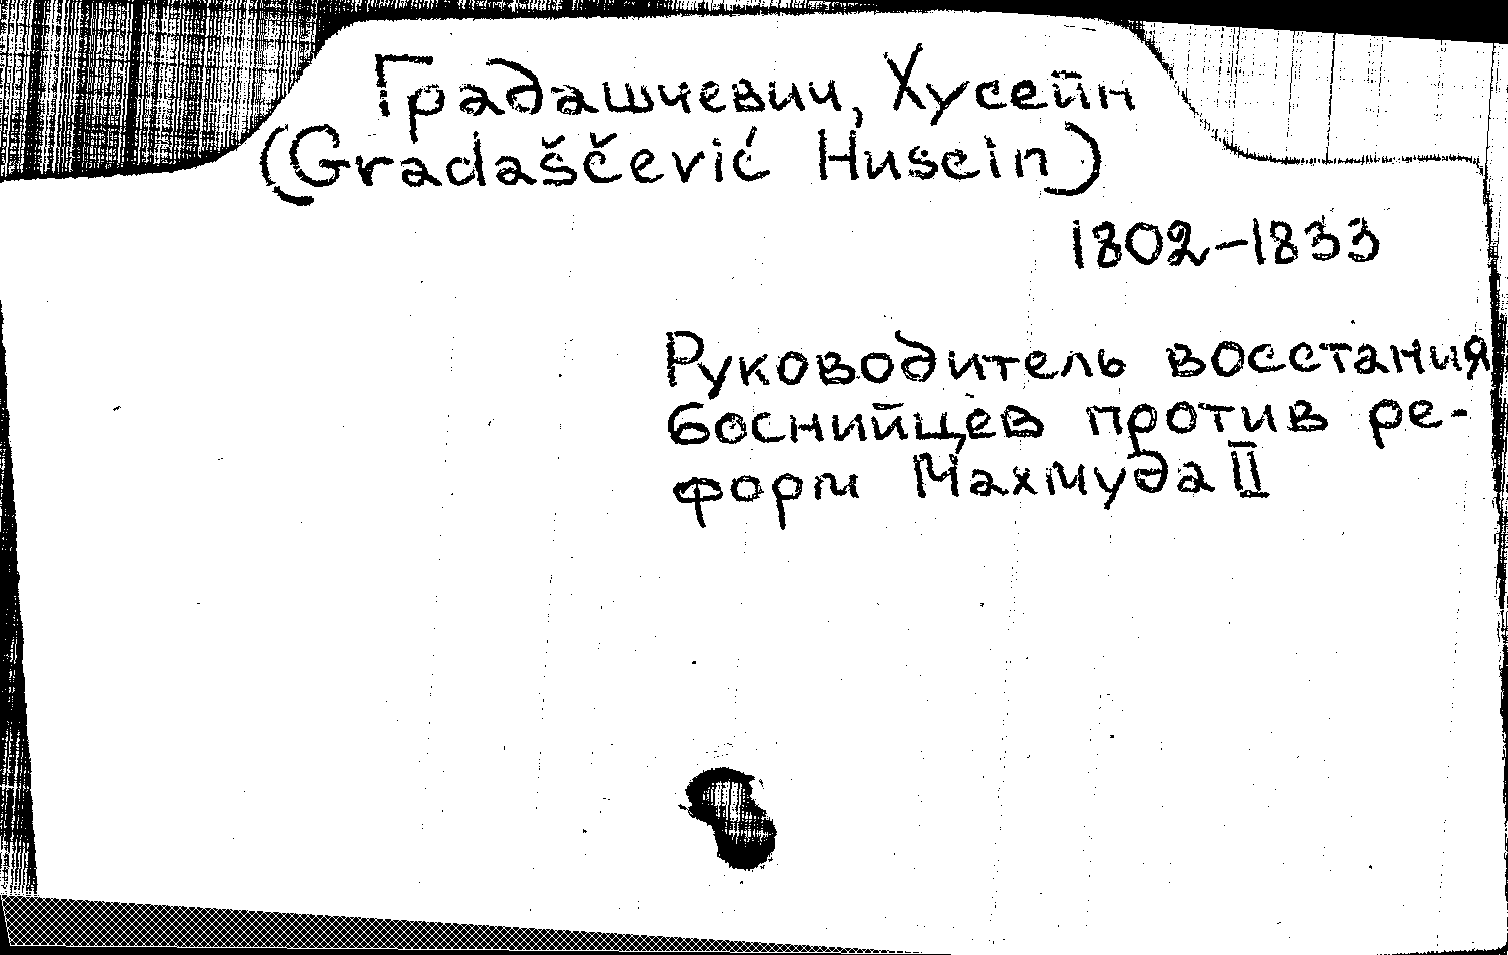 Градашчевич, Хусейн
(Gradaščević Husein)
1802-1833
Руководитель восстания
боснийцев против ре-
форм Махмуда II